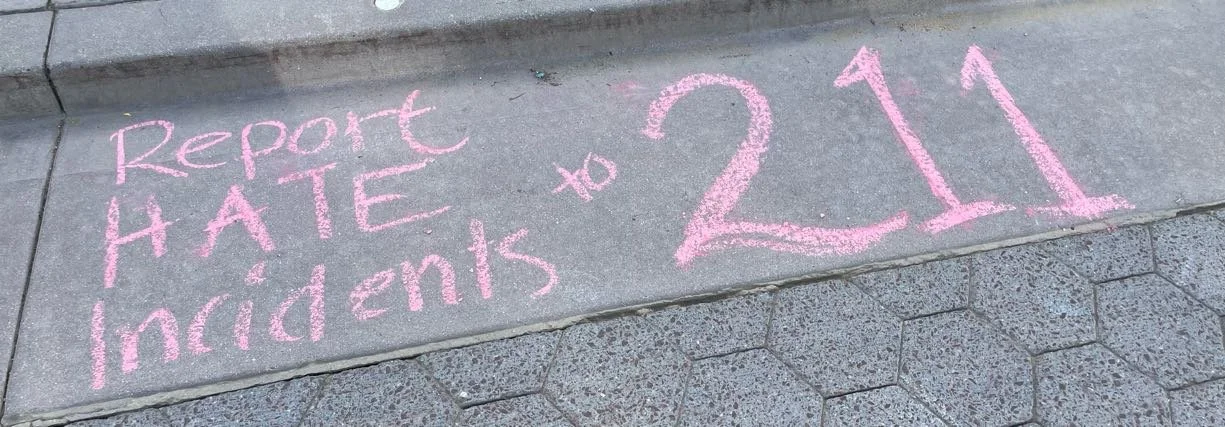 Report
HATE
Incidents
to 211